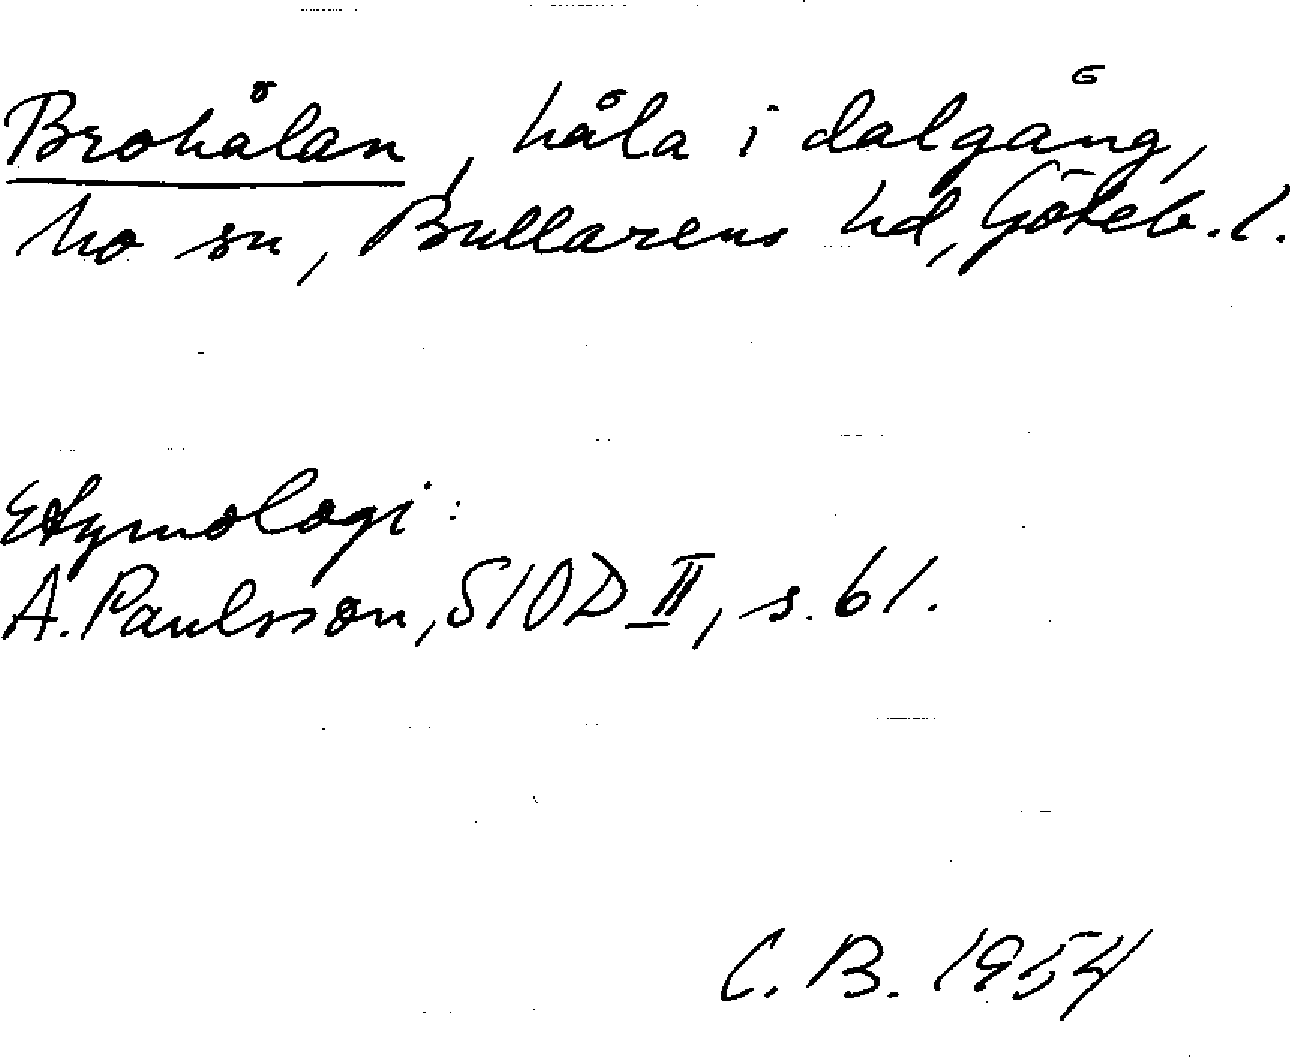 Brohålan, håla i dalgång,
ho sn, Bullarens hd, Göteb. l.
Etymologi:
A. Paulsson, SIOD II, s. 61.
C. B. 1954